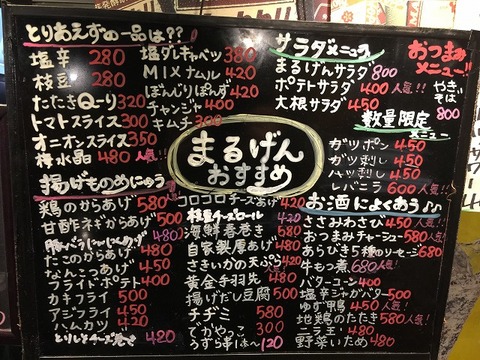 とりあえずの一品は??
塩辛 280
枝豆 280
たたきQーり 320
トマトスライス 300
オニオンスライス 350
梅水晶 480 人気!!
塩ダレキャベツ 380
MIXナムル 420
ぼんじりぽんず 420
チャンジャ 400
キムチ 300
サラダメニュー
まるげんサラダ 800
ポテトサラダ 400 人気!!
大根サラダ 450
おつまみ
メニュー!!
やきそば
800
数量限定
メニュー
ガツポン 450
ガツ刺し 450
ハツ刺し 450
レバニラ 600 人気!!
まるげん
おすすめ
揚げものめにゅう
鶏のからあげ 580
甘酢ネギからあげ 500
480
たこのからあげ 480
なんこつあげ 450
フライドポテト 400
カキフライ 500
アジフライ 450
ハムカツ 420
とりしそチーズ 420
コロコロチーズあげ 420
枝豆チーズロール 420
海鮮春巻き 680
自家製厚あげ 480
さきいかの天ぷら 420
黄金手羽先 480
揚げだし豆腐 500
チヂミ 580
でかやっこ 300
うずら串1本〜 120
お酒によくあう♪♪
ささみわさび 450 人気!!
おつまみチャーシュー 580 人気
あらびき5種のソーセージ 680
牛もつ煮 680 人気!
バターコーン 400
塩辛じゃがバター 500
ゆず鴨 450 人気!
地鶏のたたき 580 人気!
ニラ玉 480
野菜いため 480